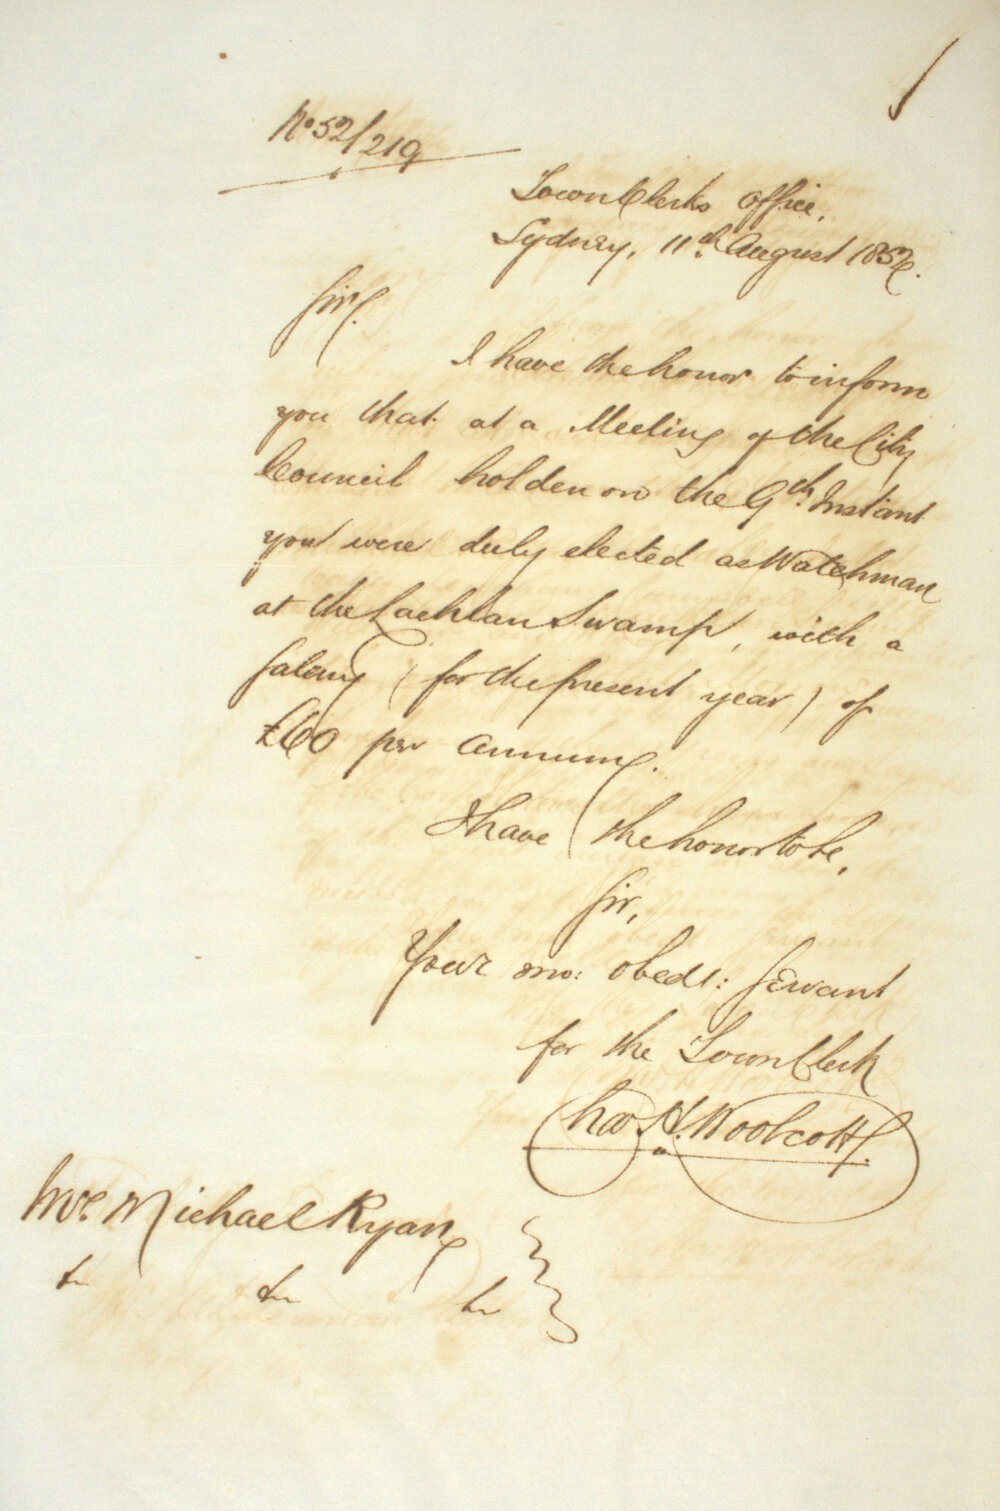 No 52/219
Town Clerks Office,
Sydney, 11th August 1852.
Sir,
I have the honor to inform
you that at a Meeting of the City
Council holden on the 9th Instant
you were duly elected as Watchman
at the Lachlan Swamp, with a
Salary (for the present year) of
£60 per annum.
I have the honor to be,
Sir,
Your mo: obedt: Servant
for the Town Clerk
Chas H. Woolcott.
Mr. Michael Ryan